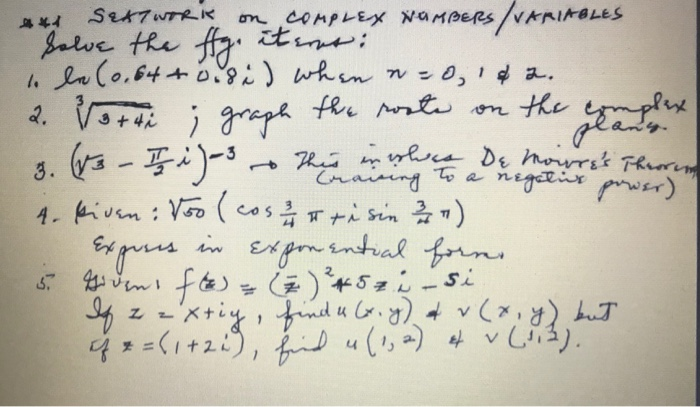 SEATWORK on COMPLEX NUMBERS/VARIABLES
Solve the ffg. items:
1. ln(0.64+0.8i) when n=0, 1 & 2.
2. ∛3+4i ; graph the roots on the complex plane.
3. (√3 - π/2 i)^-3 → This involves De Moivre's Theorem
(raising to a negative power)
4. Given: √50 (cos 3/4 π + i sin 3/4 π)
Express in exponential form.
5. Given: f(z) = (z̄)²+5zi-5i
If z = x+iy, find u(x,y) & v(x,y) but
if z=(1+2i), find u(1,2) & v(1,2).